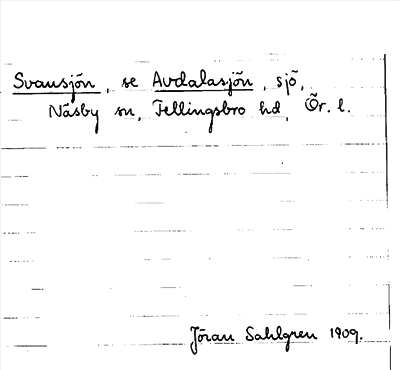 Svansjön, se Avdalasjön, sjö,
Näsby sn, Fellingsbro hd, Ör. l.
Jöran Sahlgren 1909.